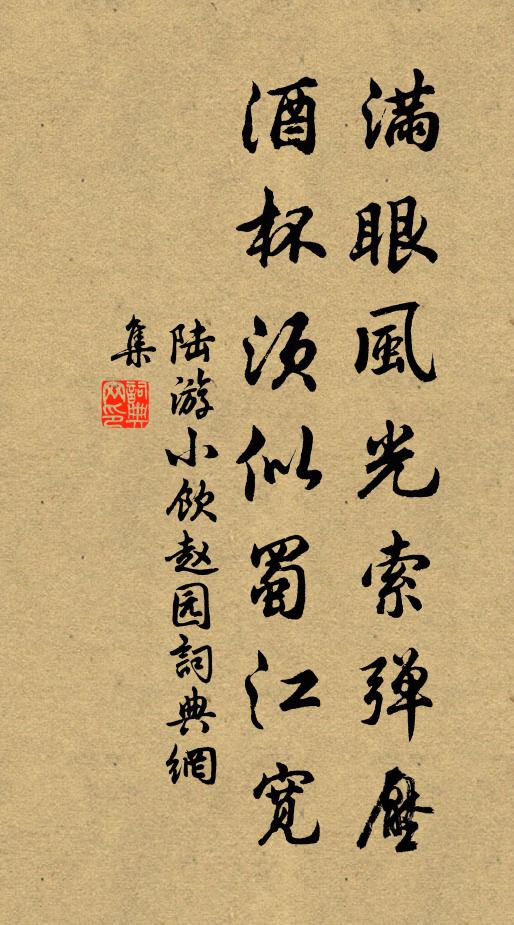 滿眼風光索彈壓
酒杯須似蜀江寬
陆游小飲赵园詞典網
集
詞典网印